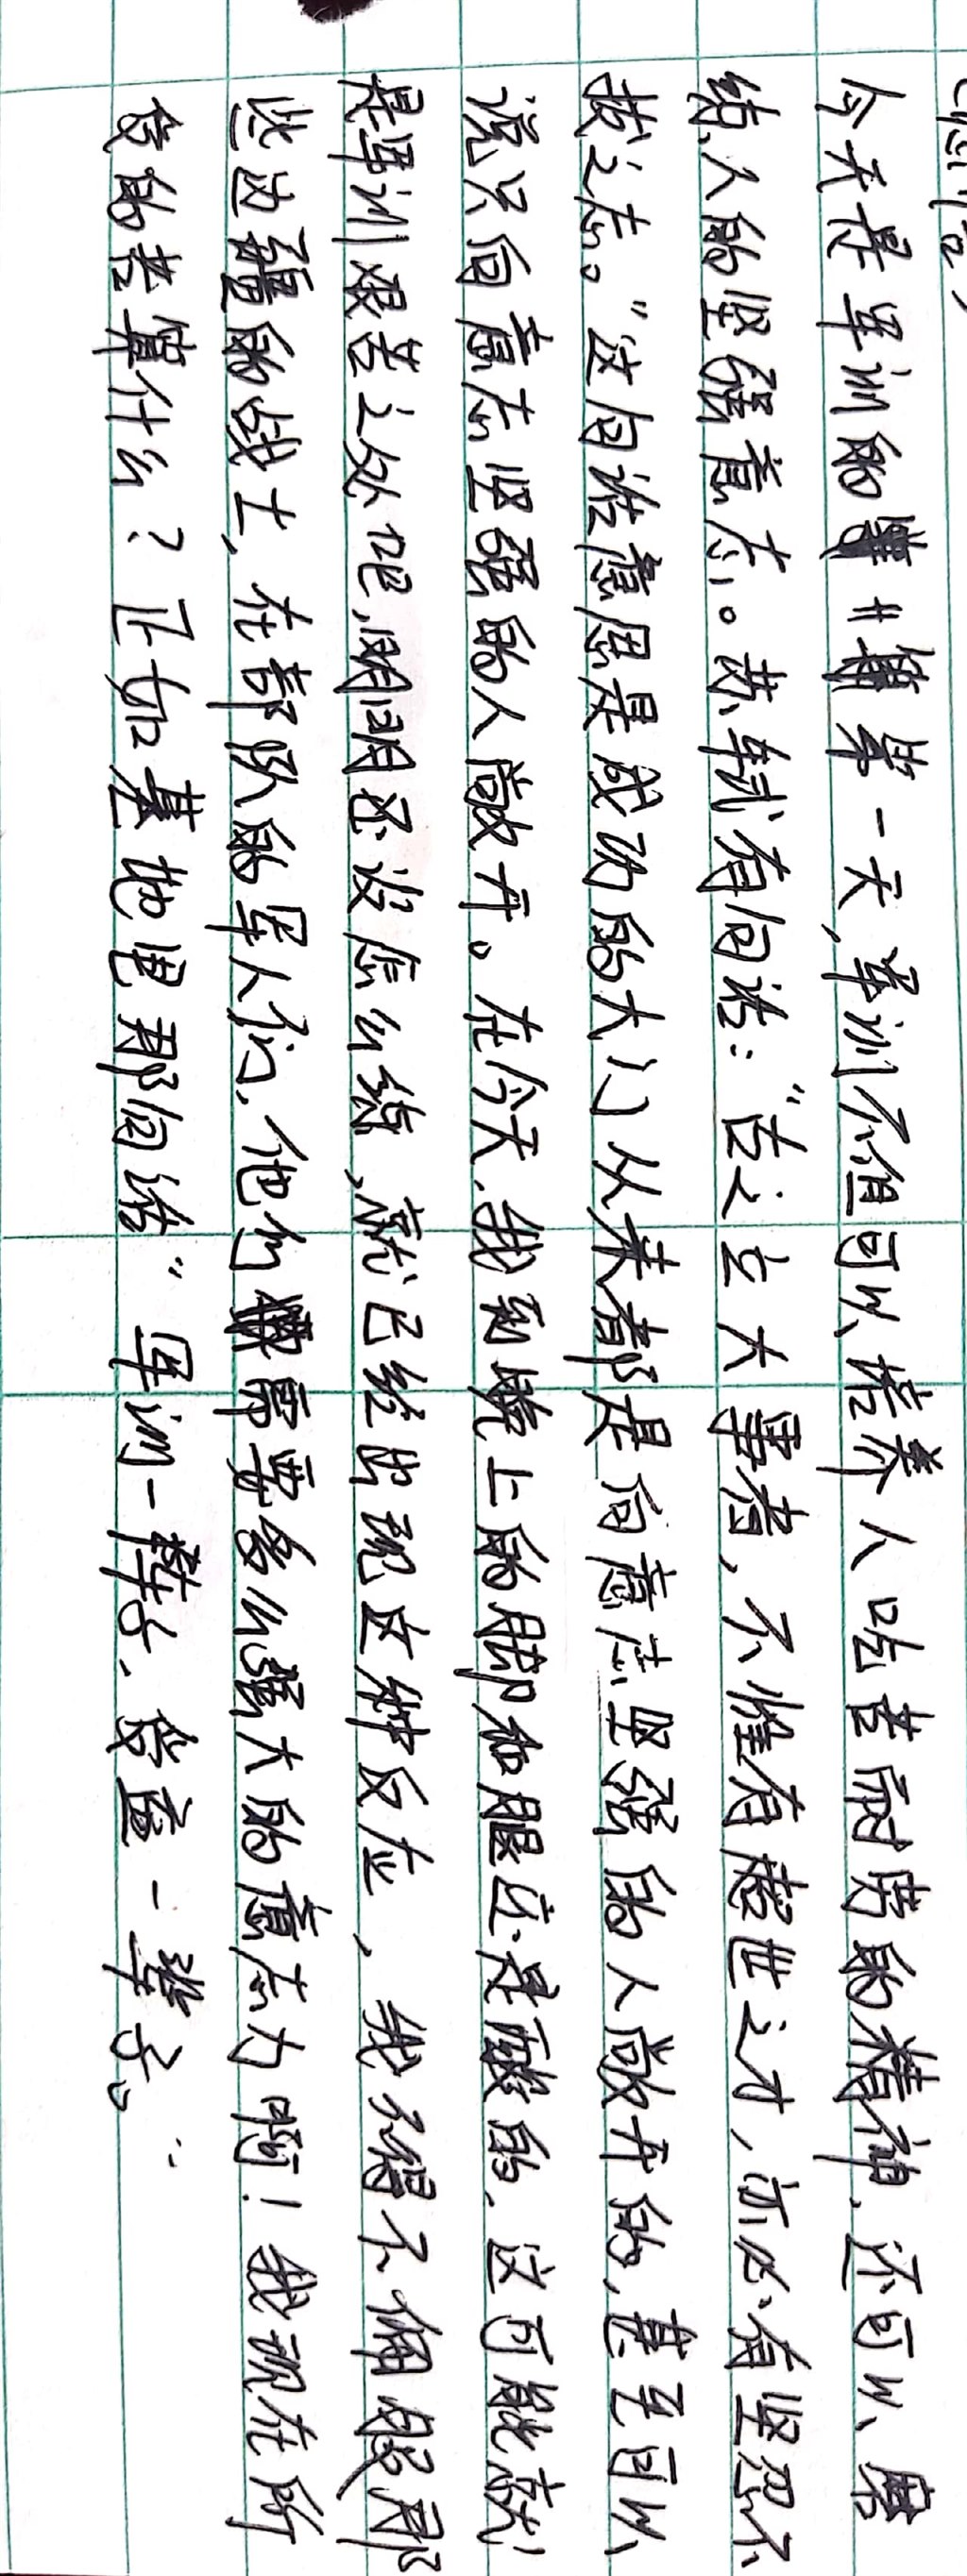 今天是军训的第一天，军训不但可以培养人吃苦耐劳的精神，还可以磨
练人的坚强意志。苏轼有句话：“古之立大事者，不惟有超世之才，亦必有坚忍不
拔之志。”这句话意思是成功的大门从来都是向意志坚强的人敞开的，甚至可以
说只向意志坚强的人敞开。在今天，我到晚上的脚和腿还是酸的，这可能就
是军训艰苦之处吧，明明还没怎么练，就已经出现这种反应，我不得不佩服那
些边疆的战士，在部队的军人们，他们需要多么强大的意志力啊！我现在所
食的苦算什么？正如基地里那句话“军训一阵子，受益一辈子。”